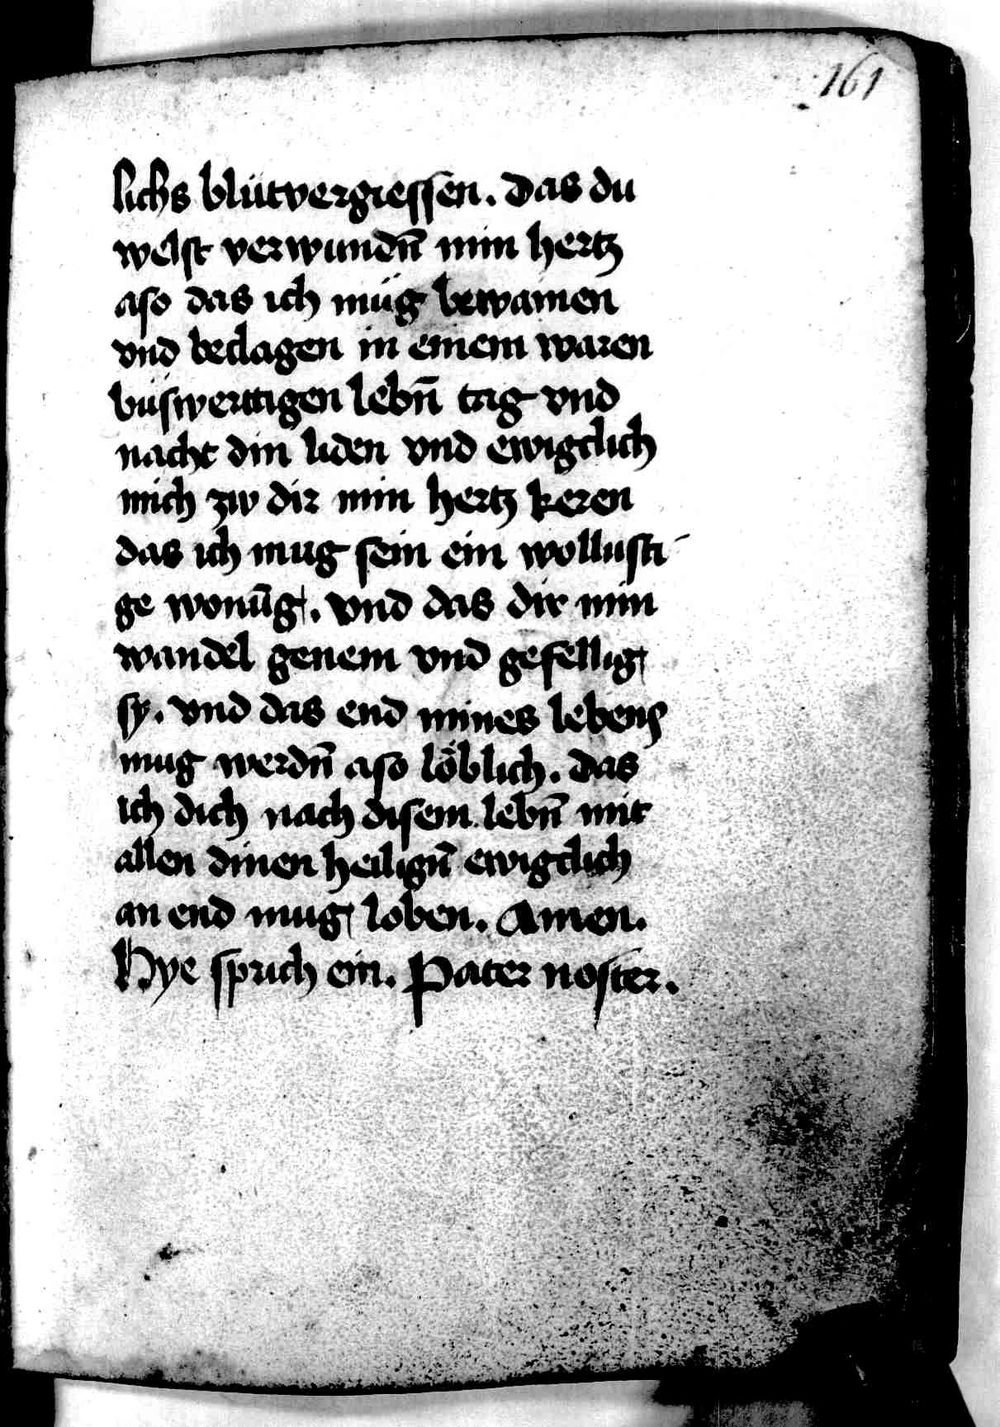 161
lichs blütvergiessen. Das du
welst verwundn̄ min hertz
aso das ich müg bewainen
vnd beclagen in einem waren
büswerttigen lebn̄ tag vnd
nacht din liden vnd ewigclich
mich zw dir min hertz keren
das ich mug sein ein wollusti-
ge wonūg. Vnd das dir min
wandel genem vnd gefellig
sy. Vnd das end mines lebens
mug werdn̄ aso löblich. Das
ich dich nach disem lebn̄ mit
allen dinen heilign̄ ewigclich
an end mug loben. Amen.
Hye sprich ein. Pater noster.